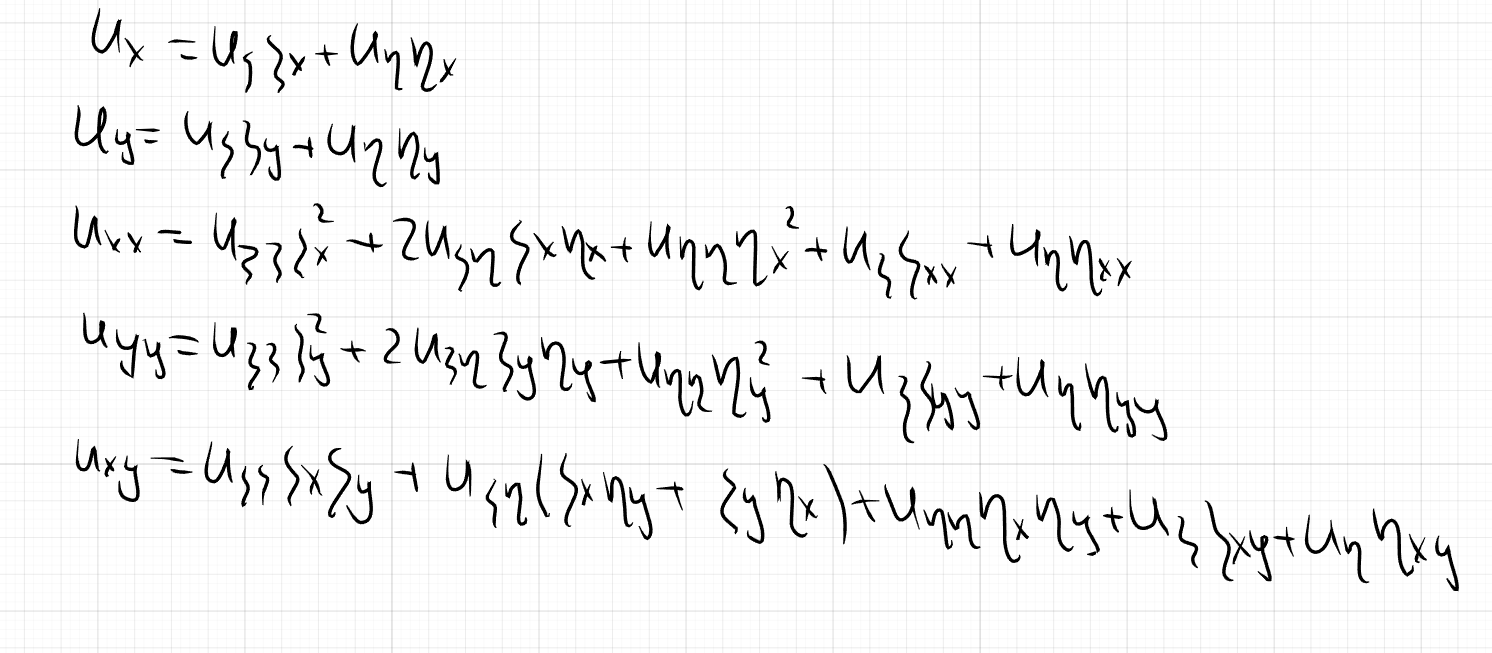 u_x = u_ξ ξ_x + u_η η_x
u_y = u_ξ ξ_y + u_η η_y
u_xx = u_ξξ ξ_x² + 2u_ξη ξ_x η_x + u_ηη η_x² + u_ξ ξ_xx + u_η η_xx
u_yy = u_ξξ ξ_y² + 2u_ξη ξ_y η_y + u_ηη η_y² + u_ξ ξ_yy + u_η η_yy
u_xy = u_ξξ ξ_x ξ_y + u_ξη (ξ_x η_y + ξ_y η_x) + u_ηη η_x η_y + u_ξ ξ_xy + u_η η_xy